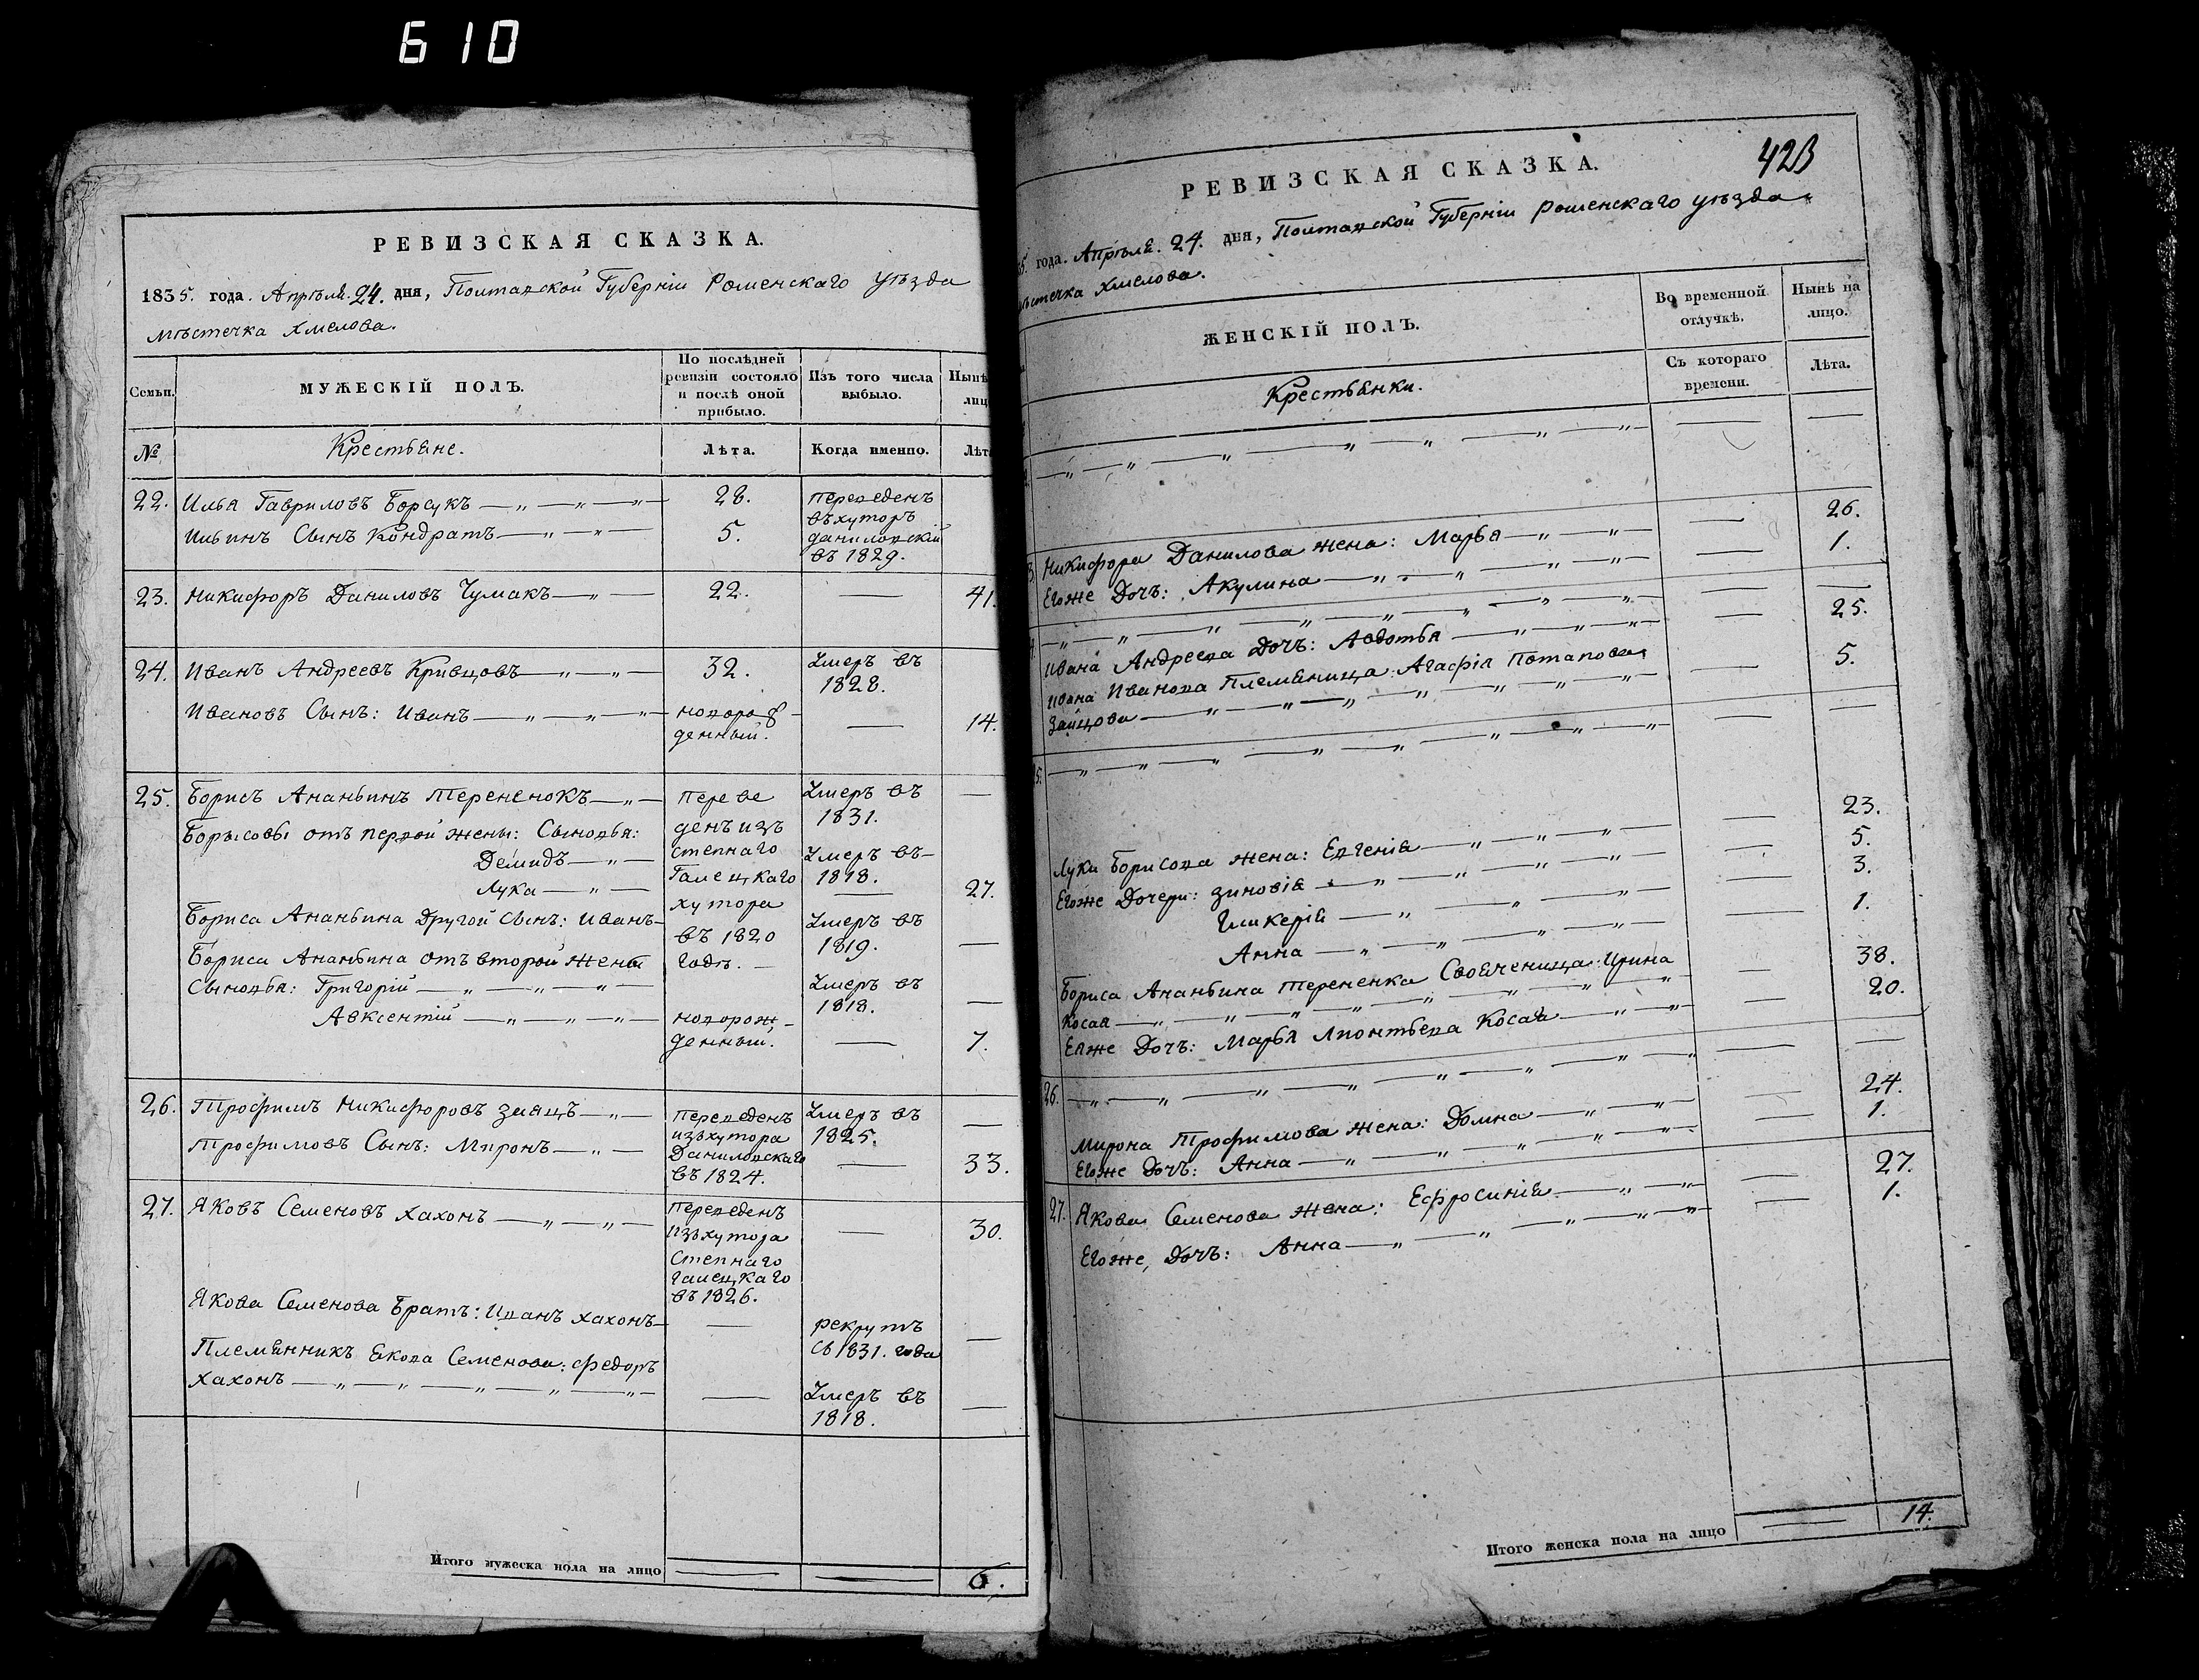 610
РЕВИЗСКАЯ СКАЗКА.
1835. года. Апрѣля. 24. дня, Полтавской Губерніи Роменскаго уѣзда
мѣстечка Хмелова.
Семьи.
МУЖЕСКІЙ ПОЛЪ.
По послѣдней ревизіи состояло и послѣ оной прибыло.
Изъ того числа выбыло.
Нынѣ лиц
№
Крестьяне.
Лѣта.
Когда именно.
Лѣт
22. Илья Гавриловъ Борсукъ —„—„—„— 28. переведенъ
Ильинъ Сынъ Кондратъ —„—„— 5. въ хуторъ
даниловскій
въ 1829.
23. Никифоръ Даниловъ Чумакъ —„— 22. — 41.
24. Иванъ Андреевъ Кривцовъ —„—„— 32. Умеръ въ
1828.
Ивановъ Сынъ: Иванъ —„—„—„— новорож-
денный. — 14.
25. Борисъ Ананьинъ Терененокъ —„— переве Умеръ въ —
денъ изъ 1831.
Борысовы отъ первой жены: Сыновья:
степнаго
Демидъ —„— Умеръ въ
Галецкаго 1818.
Лука —„— — 27.
хутора
Бориса Ананьина другой сынъ: Иванъ — Умеръ въ
въ 1820 1819. —
Бориса Ананьина отъ второй жены годѣ. —
Сыновья: Григорій —„—„—„— Умеръ въ
1818. —
Авксентій —„—„—„— новорож-
денный. — 7.
26. Трофимъ Никифоровъ Заяцъ —„— переведенъ Умеръ въ —
изъ хутора 1825.
Трофимовъ Сынъ: Миронъ —„— Даниловскаго — 33.
въ 1824.
27. Яковъ Семеновъ Хахонъ —„—„— переведенъ — 30.
изъ хутора
Степнаго
галецкаго
въ 1826.
Якова Семенова Братъ: Иванъ Хахонъ — — рекрутъ —
съ 1831. года
Племянникъ Якова Семенова: Федоръ
Хахонъ —„—„—„—„—„— — Умеръ въ —
1818.
Итого мужеска пола на лицо — — 6.
423
РЕВИЗСКАЯ СКАЗКА.
5. года. Апрѣля. 24. дня, Полтавской Губерніи Роменскаго уѣзда
мѣстечка Хмелова.
ЖЕНСКІЙ ПОЛЪ.
Во временной отлучкѣ.
Нынѣ на лицо.
Крестьянки.
Съ котораго времени.
Лѣта.
—„—„—„—„—„—„—„— — —
Никифора Данилова жена: Марья —„—„ — 26.
Егоже Дочъ: Акулина —„—„—„—„— — 1.
—„—„—„—„—„—„—„— — —
Ивана Андреева Дочъ: Авдотья —„—„—„— — 25.
Ивана Иванова Племяница: Агафія Потапова
Зайцова —„—„—„—„—„—„—„— — 5.
—„—„—„—„—„—„—„—„— — —
Луки Борисова жена: Евгенія —„—„—„— — 23.
Егоже Дочери: Зиновія —„—„—„—„— — 5.
Гликерія —„—„—„— — 3.
Анна —„—„—„—„— — 1.
Бориса Ананьина Терененка Своячепица: Ирина
Косая —„—„—„—„—„—„—„ — 38.
Еяже Дочъ: Марья Леонтьева Косая —„—„— — 20.
26. —„—„—„—„—„—„— — —
Мирона Трофимова жена: Домна —„—„— — 24.
Егоже Дочъ: Анна —„—„—„—„— — 1.
27. Якова Семенова жена: Ефросинія —„—„— — 27.
Егоже, Дочъ: Анна —„—„—„—„—„— — 1.
Итого женска пола на лицо — 14.